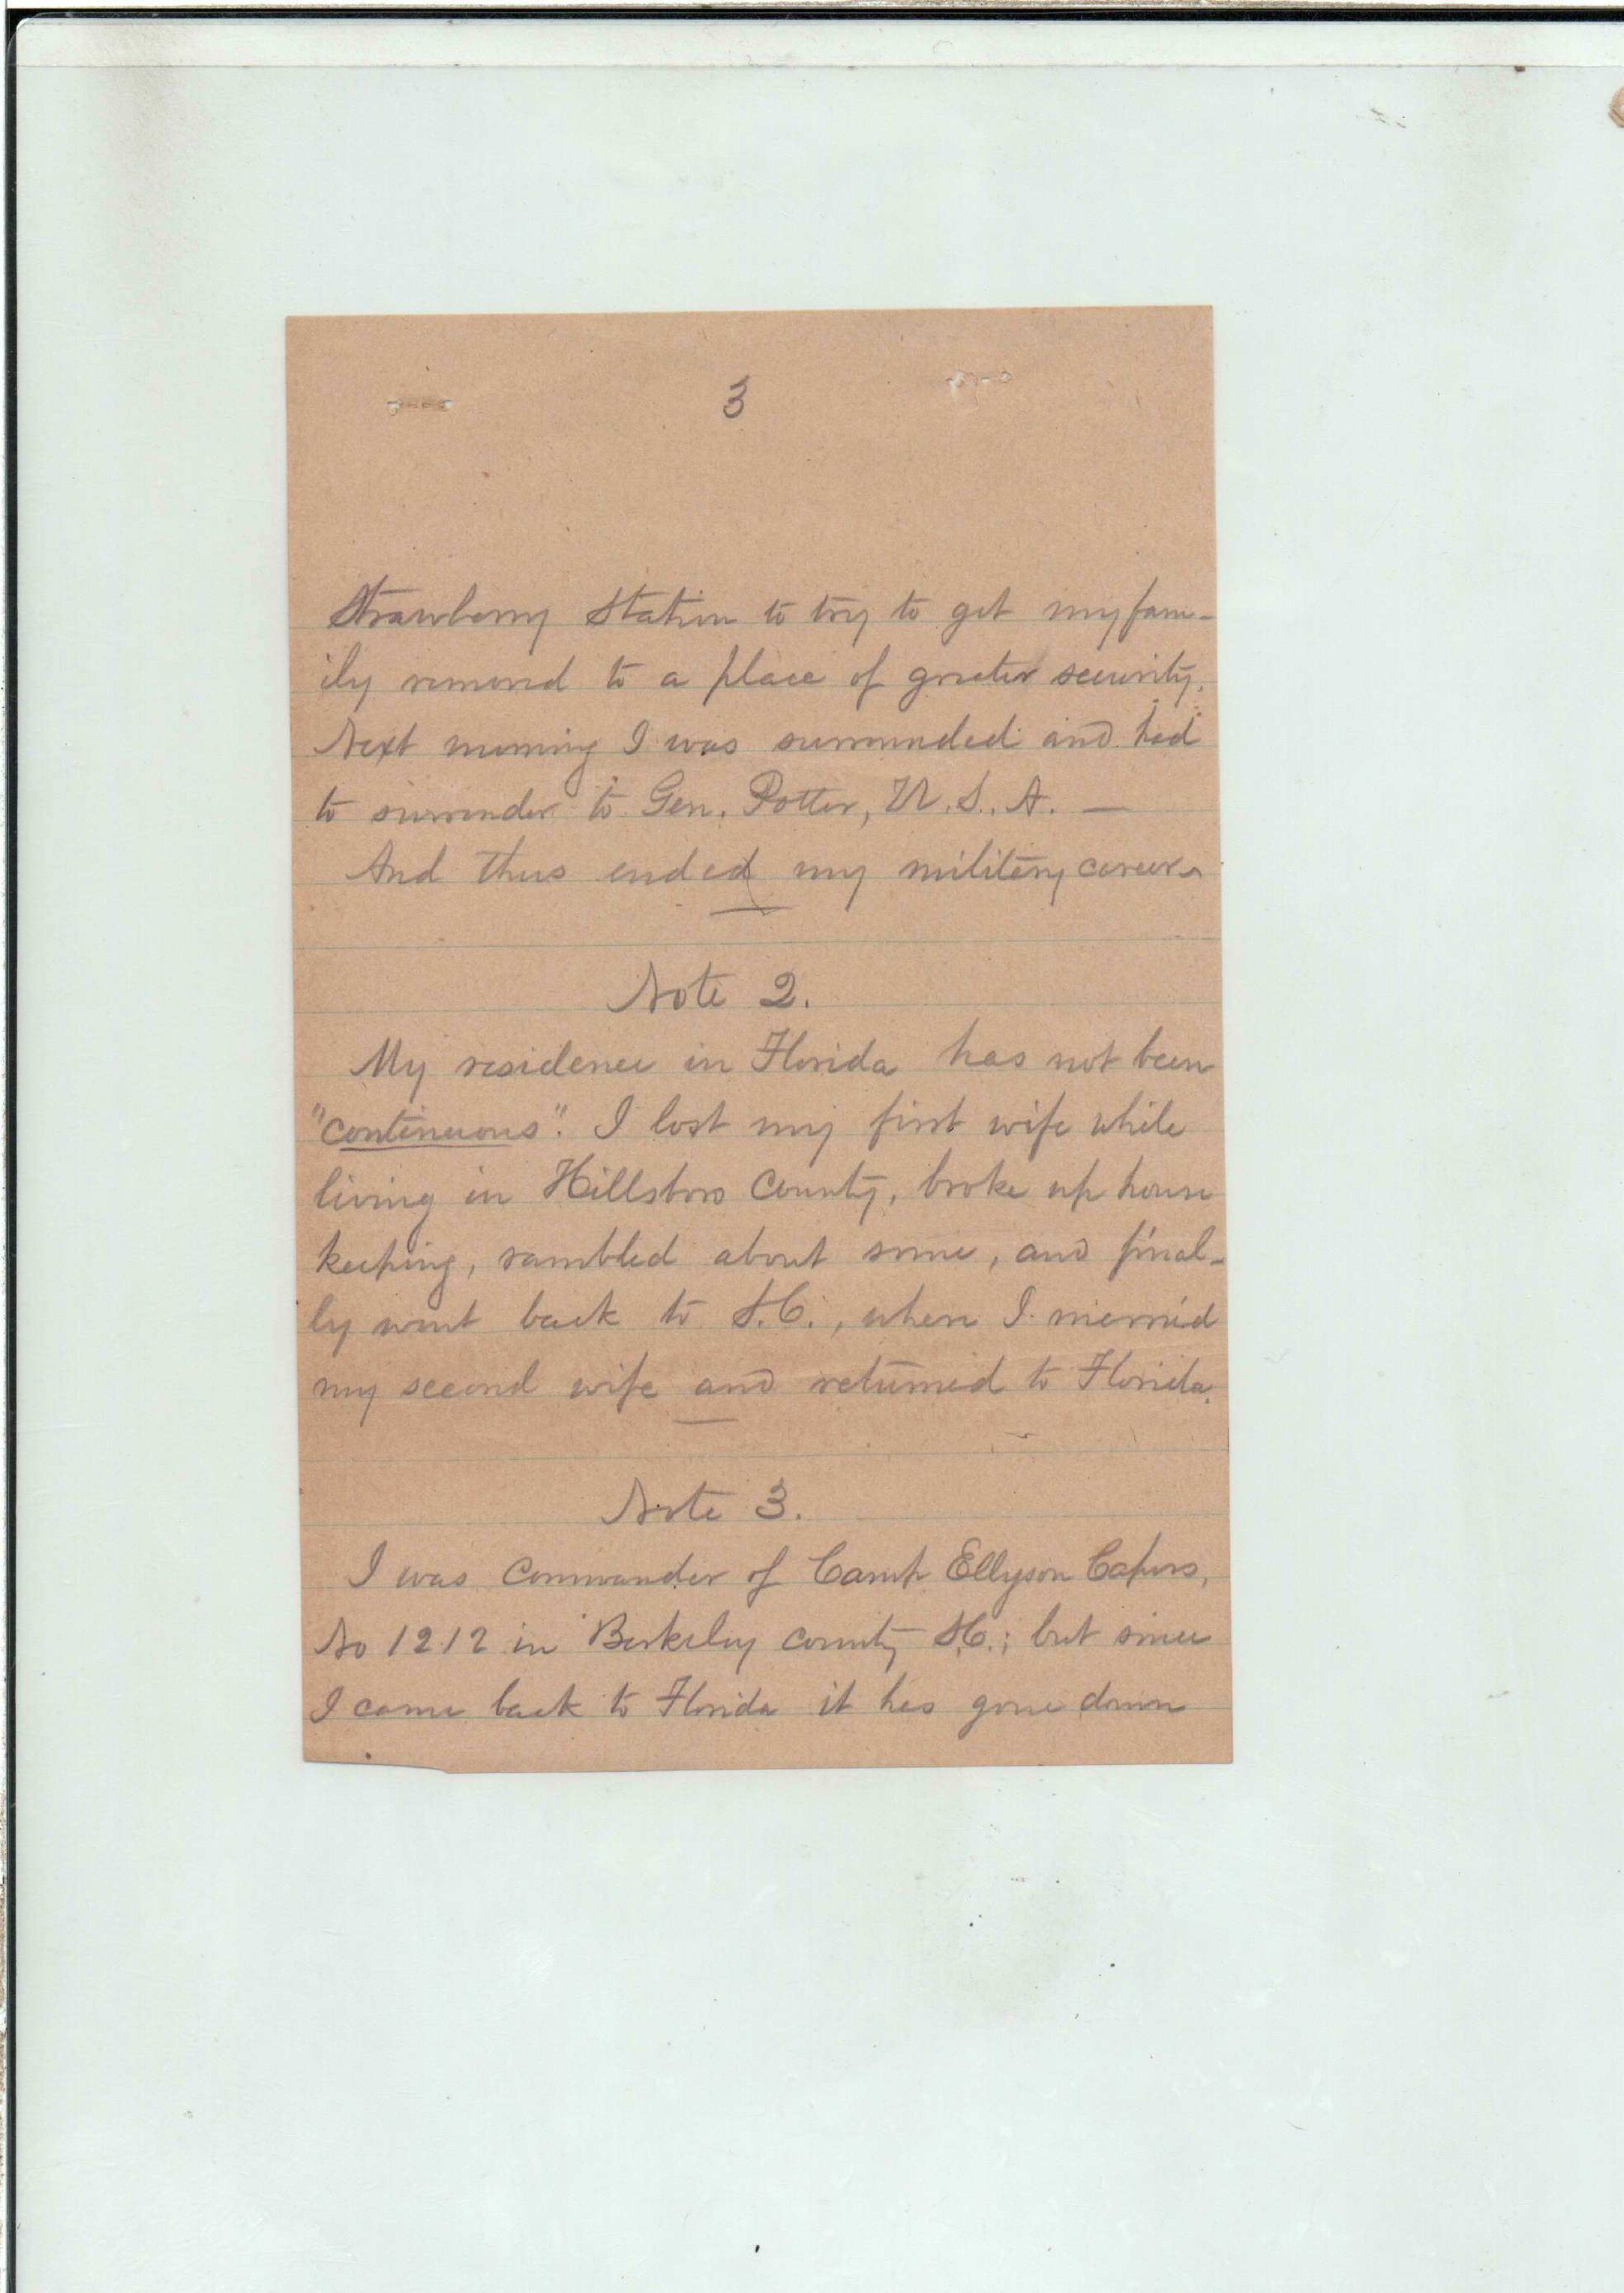 3
Strawberry Station to try to get my fam-
ily removed to a place of greater security.
Next morning I was surrounded and had
to surrender to Gen. Potter, U.S.A. —
And thus ended my military career.
Note 2.
My residence in Florida has not been
"continuous". I lost my first wife while
living in Hillsboro County, broke up house
keeping, rambled about some, and final-
ly went back to S.C., where I married
my second wife and returned to Florida.
Note 3.
I was Commander of Camp Ellyson Capers,
No 1212 in Berkeley county S.C.; but since
I came back to Florida it has gone down